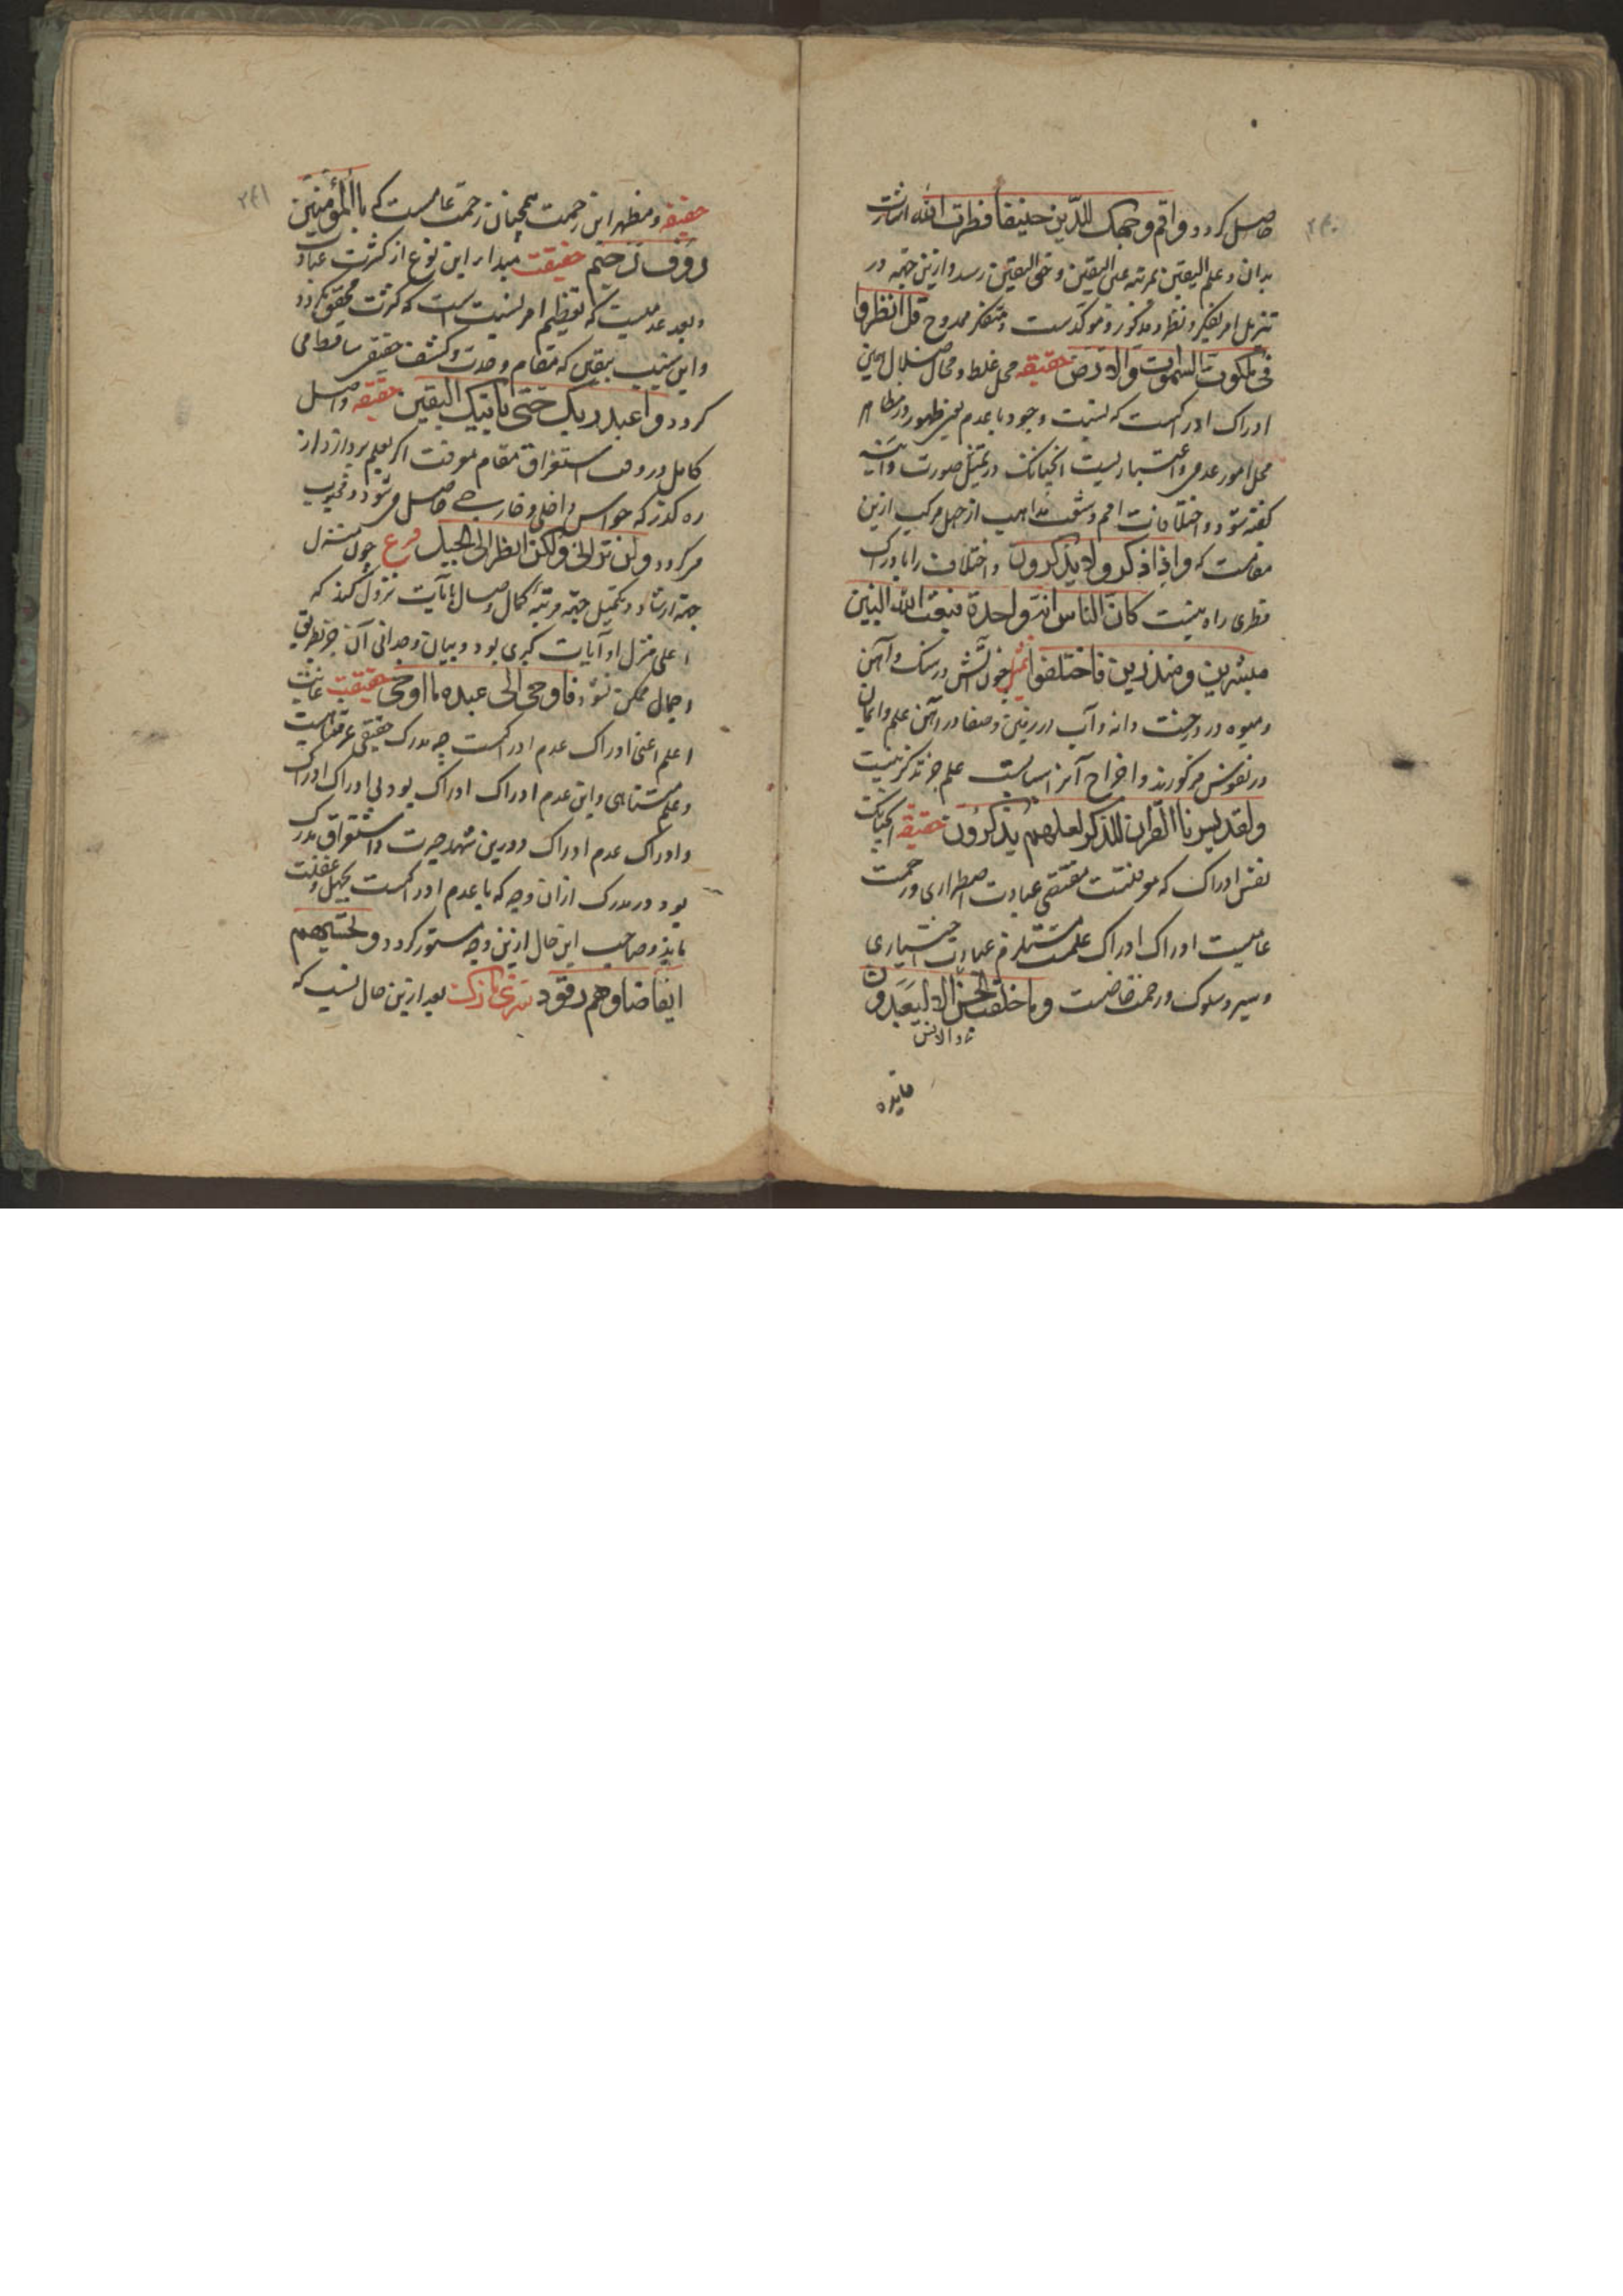 ۲۴۰
حاصل کردد واقم وجهک للدین حنیفا فطرت الله اشارت
بدان و علم الیقین بمرتبه عین الیقین و حق الیقین رسد و ازین جهة در
تنزیل امر بتفکر و نظر مذکور و موکدست و متفکر ممدوح قل انظروا
فی ملکوت السموات والارض حقیقه محل غلط و محال ضلال همین
ادراک ادراکست که نسبت وجود با عدم یعنی ظهور در مظاهر
محل امور عدمی و اعتباریست انچنانک در تمثیل صورت و آینه
کفته شود و اختلافات امم و تشعب مذاهب از جهل مرکب ازین
مقامست که واذا ذکروا لا یذکرون و اختلاف را با درک
فطری راه نیست کان الناس امة واحدة فبعث الله النبین
مبشرین ومنذرین فاختلفوا تمثیل چون آتش در سنک و آهن
و میوه در درخت و دانه و آب در زمین و صفا در آهن علم و ایمان
در نفوس مرکوزند و اخراج آنرا اسبابست علم جز تذکر نیست
ولقد یسرنا القران للذکر لعلهم یذکرون حقیقه انچنانک
نفس ادراک که موقتست مقتضی عبادت اضطراری و رحمت
عامست ادراک ادراک علمست مستلزم عبادت اختیاری
و سیر و سلوک و رحمت خاصست وما خلقت الجن الا لیعبدون
والانس
فایده
۲۴۱
حقیقه و مظهر این رحمت همچنان رحمت عامست که بالمؤمنین
روف رحیم حقیقت مبدا بر این نوع از کثرت عبادت
و بعد عدمیست که تعظیم امر نسبیت است که کثرت محقق کردد
و این نسب بیقین که مقام وحدت و کشف حقیقی ساقط می
کردد واعبد ربک حتی یاتیک الیقین حقیقه واصل
کامل در وقت استغراق مقام معرفت اکر بعلم پردازد از
ره کذر که حواس داخلی و خارجی حاصل می شود و محجوب
می کردد ولن ترانی ولکن انظر الی الجبل فرع چون متنزل
جهة ارشاد و تکمیل جهة مرتبه کمال وصال با آیات نزول کند که
اعلی منزل او آیات کبری بود و بیان وجدانی آن جز بطریق
اجمال ممکن نشود فاوحی الی عبده ما اوحی حقیقت غایت
اعلم اعنی ادراک عدم ادراکست چه مدرک حقیقی غیر متناهیست
و علم متناهی و این عدم ادراک ادراک بود بی ادراک ادراک
و ادراک عدم ادراک و درین مشهد حیرت و استغراق مدرک
بود در مدرک از ان وجه که با عدم ادراکست بجهل و غفلت
ماند و صاحب این حال ازین وجه مستور کردد وتحسبهم
ایقاضا وهم رقود سری نازک بعد ازین حال نسبت که